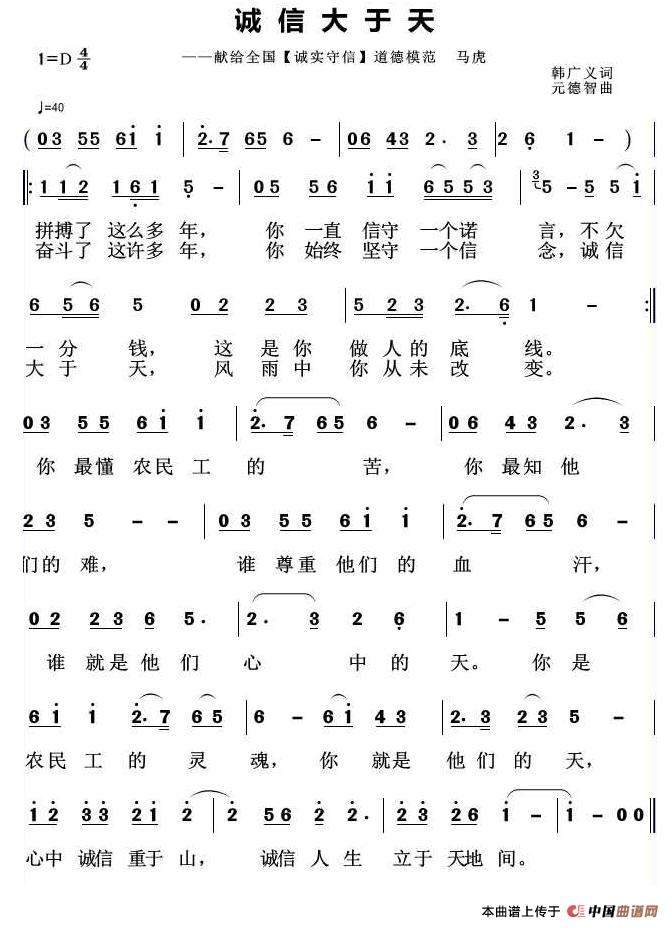 诚信大于天
1=D 4/4
——献给全国【诚实守信】道德模范 马虎
韩广义词
元德智曲
♩=40
( 0 3 5 5 6 i i | 2. 7 6 5 6 - | 0 6 4 3 2. 3 | 2 6 1 - )
|: 1 1 2 1 6 1 5 - | 0 5 5 6 i i 6 5 5 3 | 3 5 - 5 5 i |
拼搏了 这么多 年， 你 一直 信守 一个诺 言，不欠
奋斗了 这许多 年， 你 始终 坚守 一个信 念，诚信
6 5 6 5 0 2 2 3 | 5 2 3 2. 6 1 - :|
一 分 钱， 这 是 你 做 人 的 底 线。
大 于 天， 风 雨 中 你 从 未 改 变。
0 3 5 5 6 i i | 2. 7 6 5 6 - | 0 6 4 3 2. 3 |
你 最懂 农民 工 的 苦， 你 最知 他
2 3 5 - - | 0 3 5 5 6 i i | 2. 7 6 5 6 - |
们的 难， 谁 尊重 他们 的 血 汗，
0 2 2 3 6 5. | 2. 3 2 6 | 1 - 5 5 6 |
谁 就是 他 们 心 中 的 天。 你 是
6 i i 2. 7 6 5 | 6 - 6 i 4 3 | 2. 3 2 2 - |
农民 工 的 灵 魂， 你 就是 他 们 的 天，
i 2 3 3 2 i 2 | 2 5 6 2 2. | 2 3 2 6 i - | i - 0 0 ‖
心中 诚信 重于 山， 诚信 人 生 立于 天地 间。
本曲谱上传于 中国曲谱网